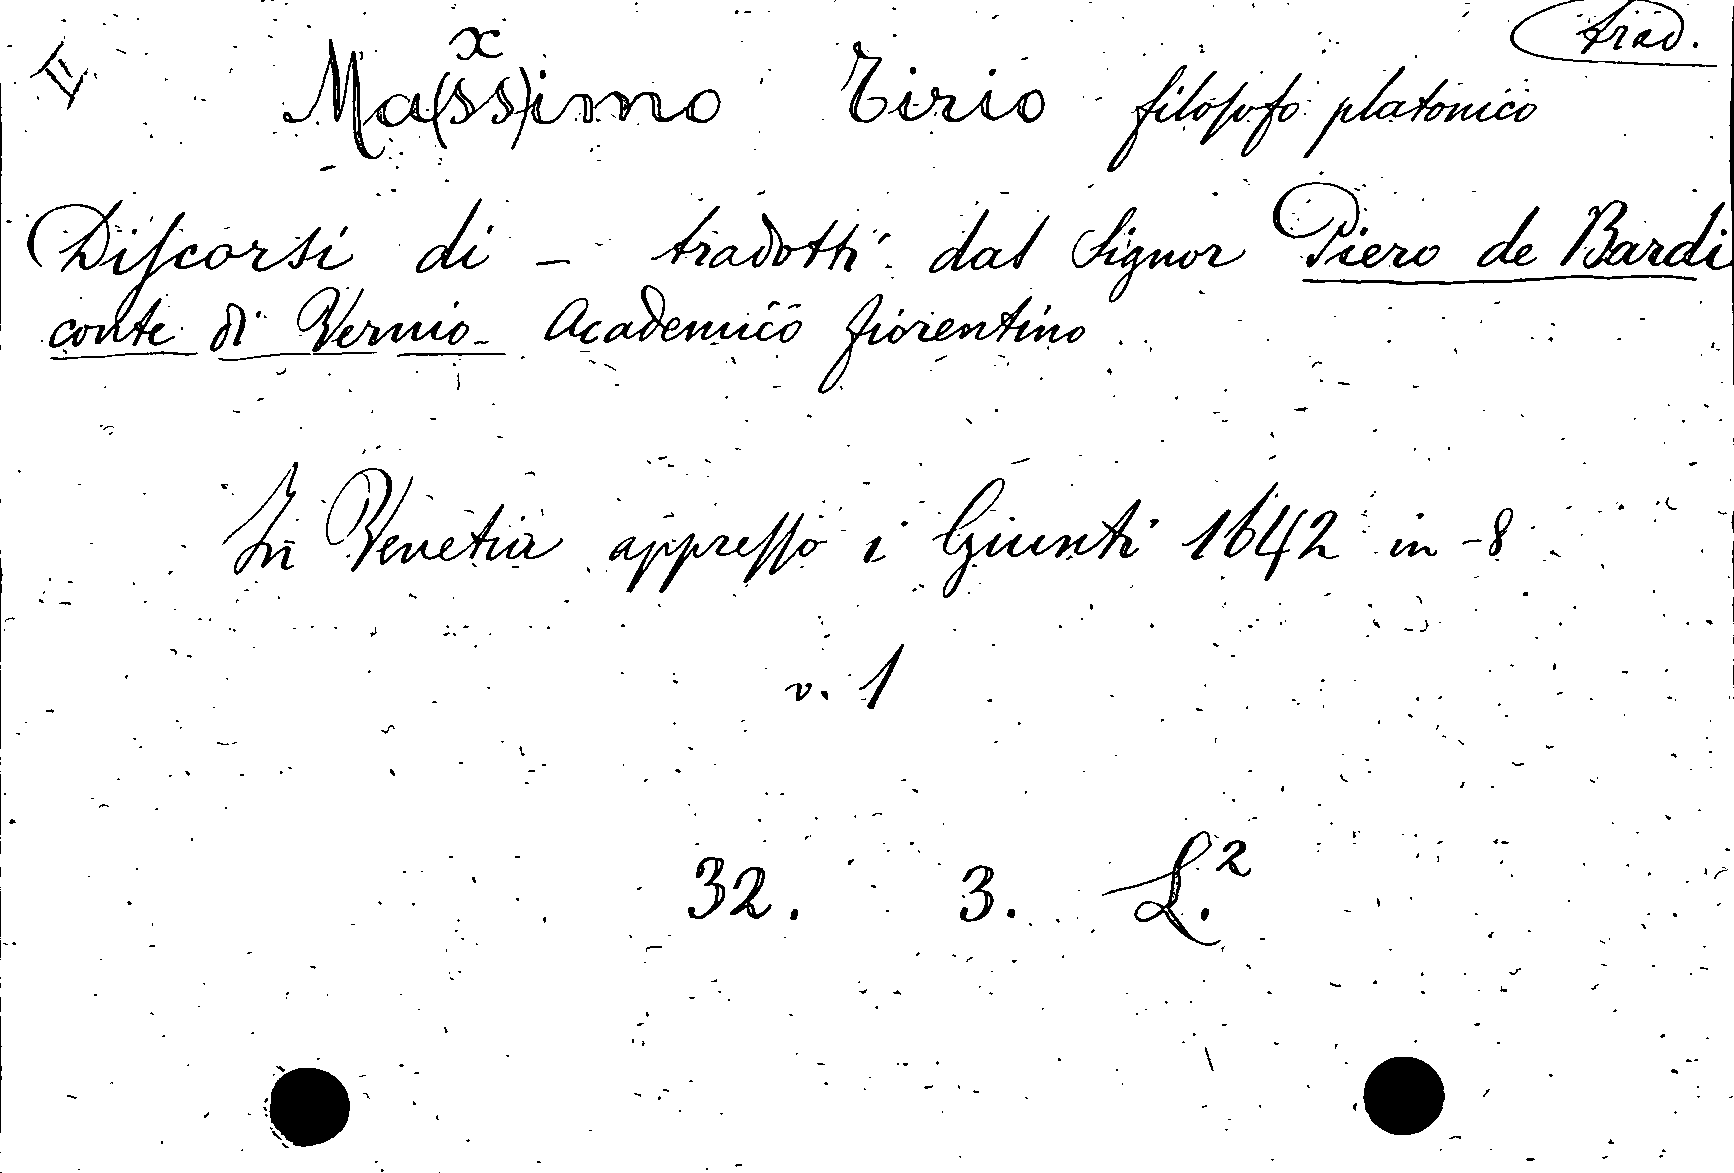 trad.
II
x
Ma(ss)imo Tirio filosofo platonico
Discorsi di - tradotti dal Signor Piero de Bardi
conte di Vernio - Academico fiorentino
In Venetia appresso i Giunti 1642 in -8
v. 1
32. 3. L.²